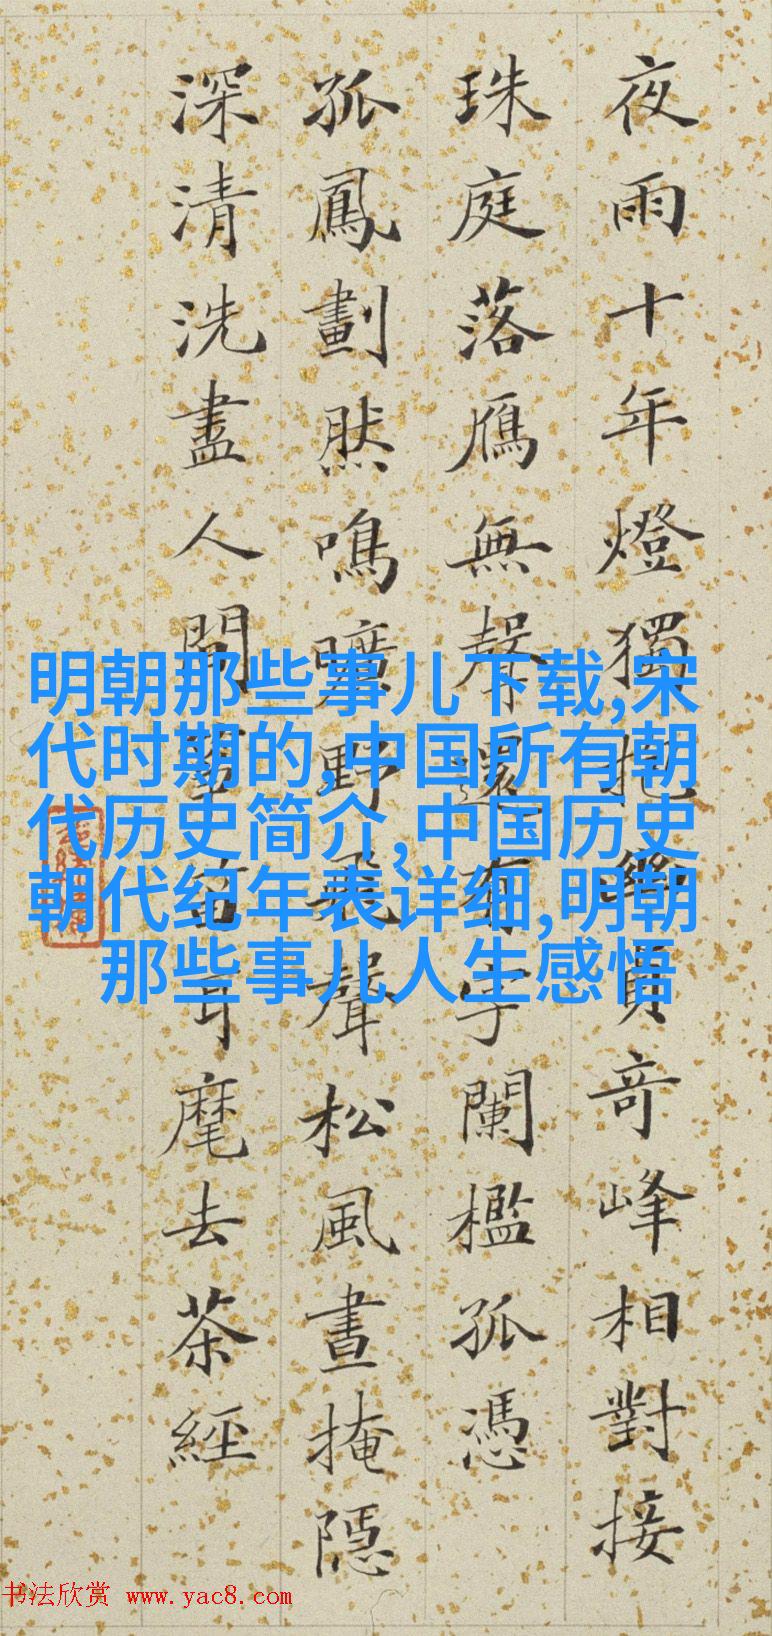 夜雨十年燈獨抱奇峰相對接
珠庭落鴈無聲還有字闌檻孤憑
孤鳳劃然鳴曠野飛聲松風晝掩隱
深清洗盡人間箏笛耳麾去茶經
明朝那些事儿下载,宋
代时期的,中国所有朝
代历史简介,中国历史
朝代纪年表详细,明朝
那些事儿人生感悟
书法欣赏 www.yac8.com